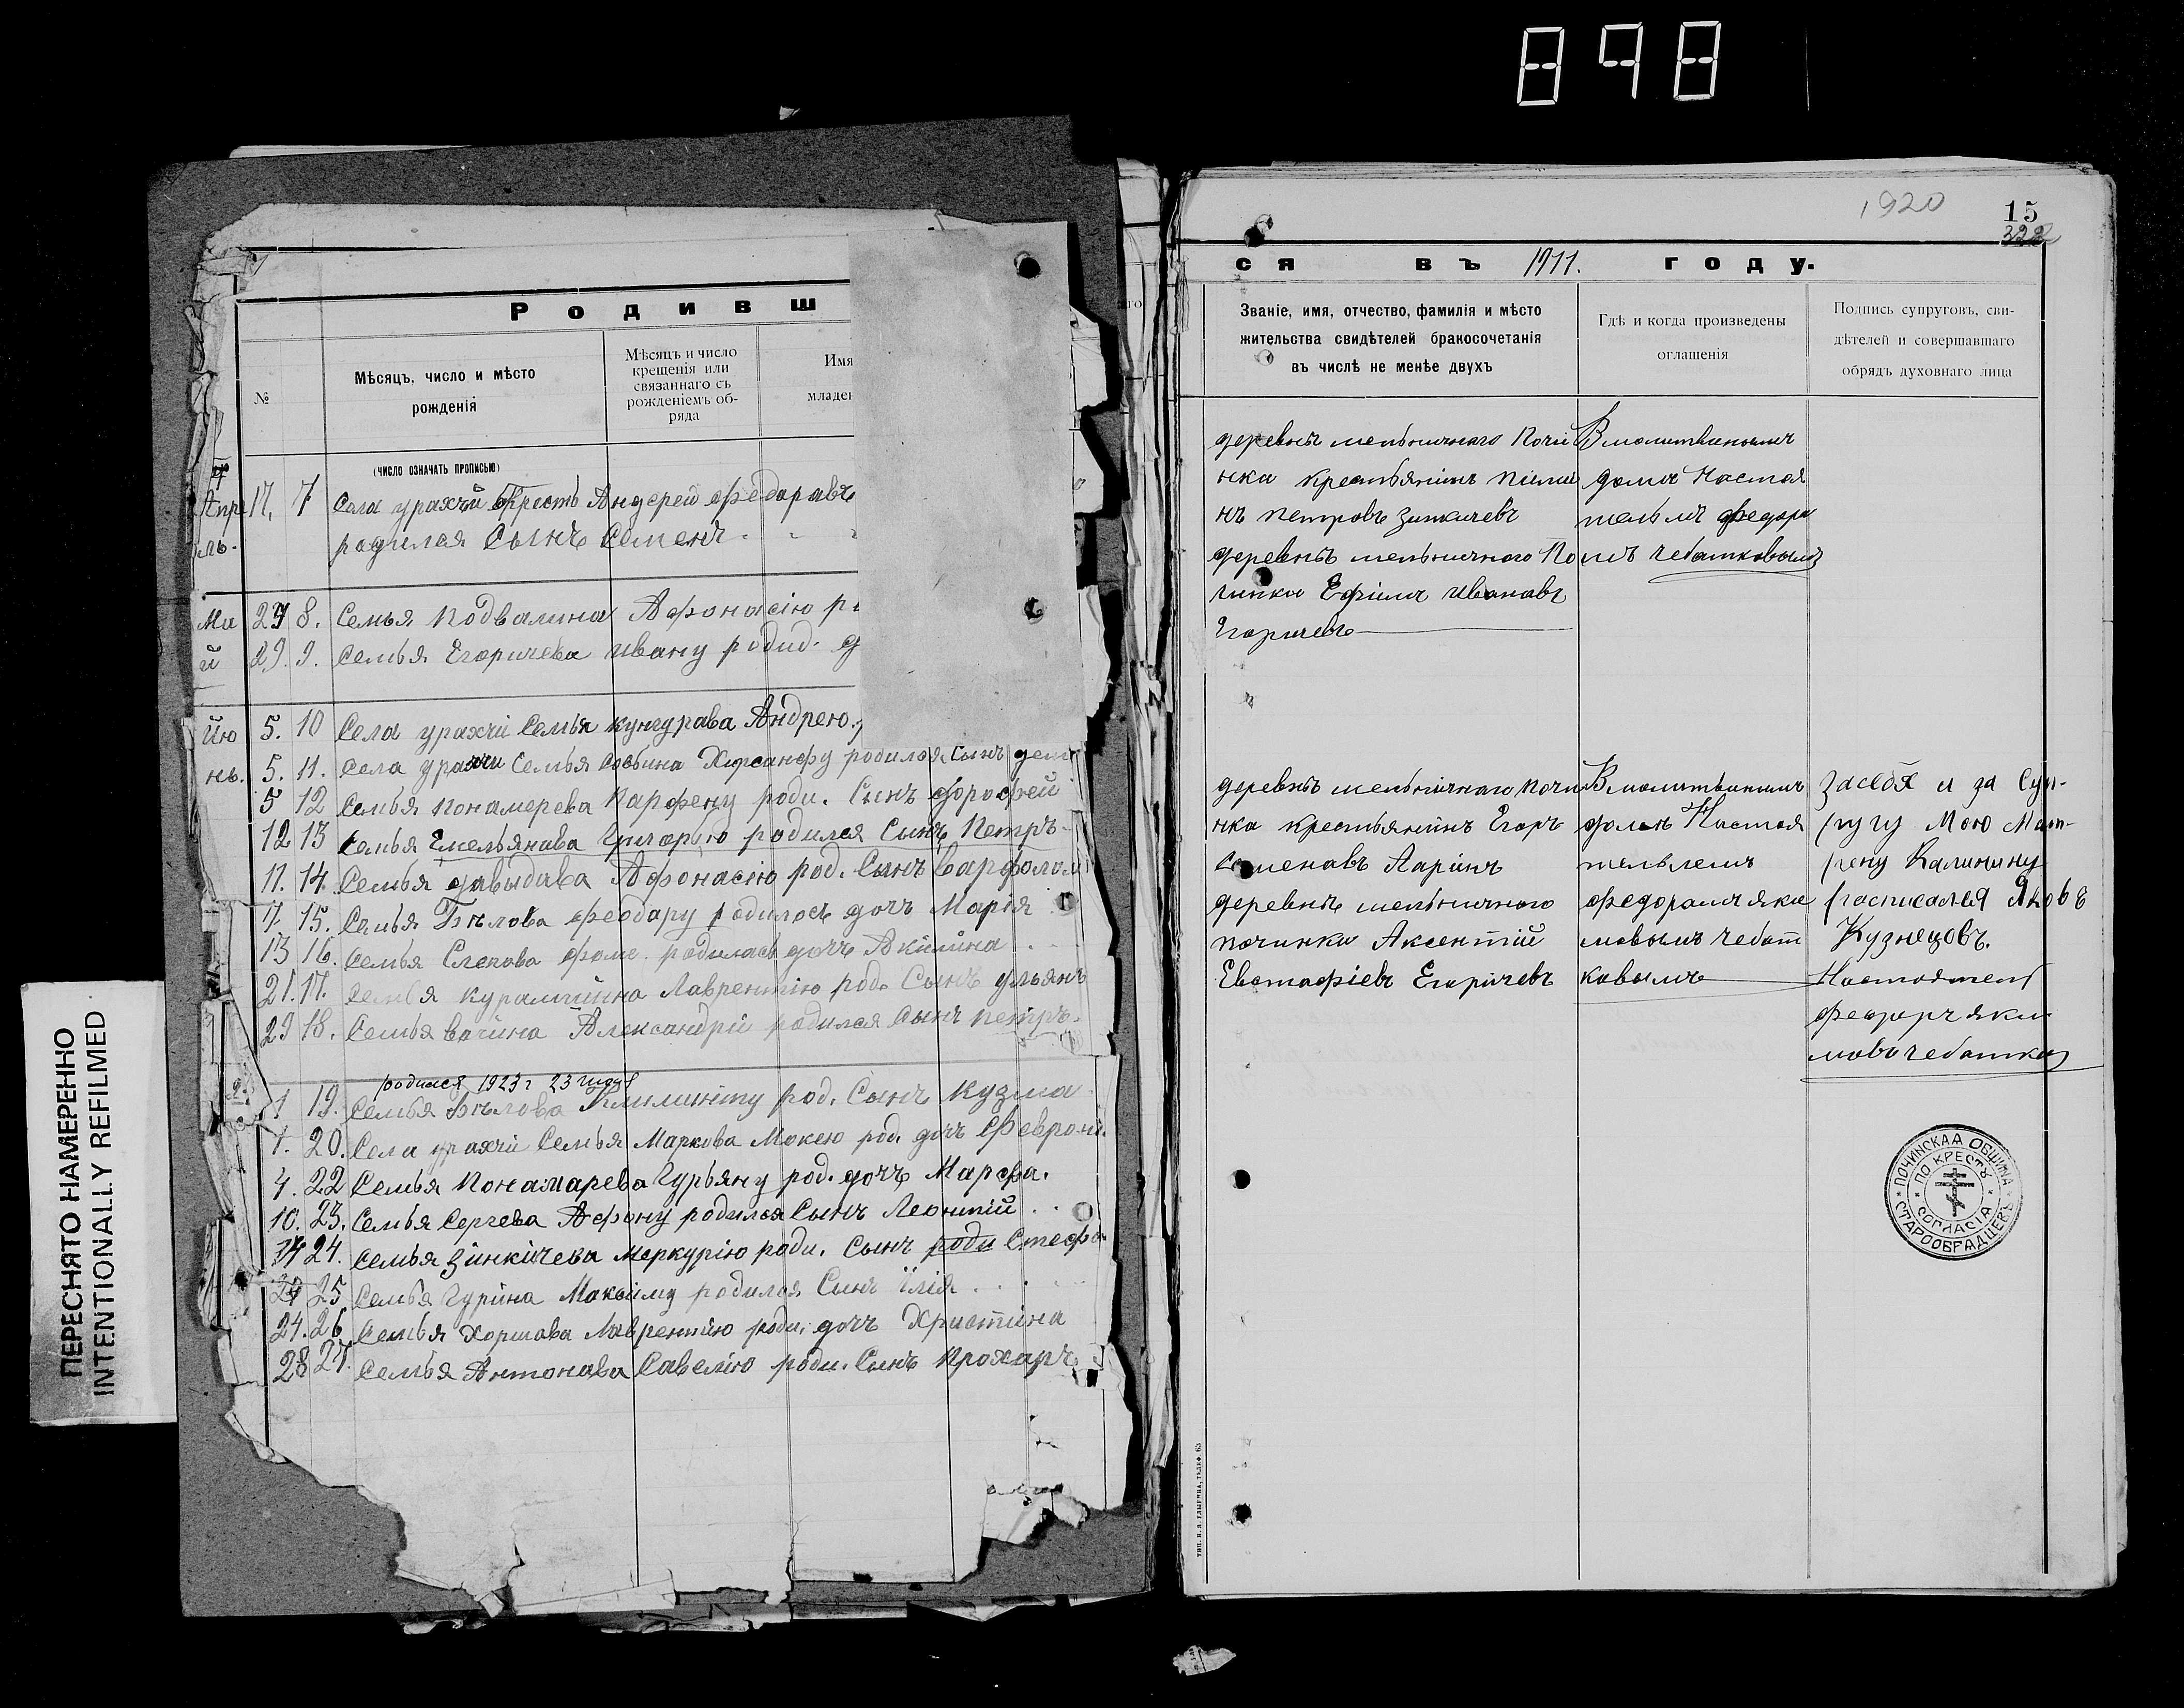 898
ПЕРЕСНЯТО НАМЕРЕННО
INTENTIONALLY REFILMED
Родивш
№
Мѣсяцъ, число и мѣсто рожденія
Мѣсяцъ и число крещенія или связаннаго съ рожденіемъ обряда
Имя
младен
(ЧИСЛО ОЗНАЧАТЬ ПРОПИСЬЮ)
Апр 17, 7 Села урахчи Андерей Федоравъ
ль. родился Сынъ Семенъ
Ма 29 8. Семья Подвалина Афонасію р
й 29. 9. Семья Егоричева ивану родид. д
Йю 5. 10 Села урахчи Семья кунгурава Андрею
нь. 5. 11. Села урахчи Семья Хрсанфу родился Сынъ
5 12 Семья Понамерева Парфену роди. Сынъ Форофей
12 13 Семья Емельянава Григорью родился Сынъ Петръ
17. 14. Семья давыдава Афонасію род. Сынъ Варфолом
17. 15. Семья Бѣлова Феодару родилось дочъ Марія
13 16. Семья Слепова Фоме родилась дочъ Акйлйна
21. 17. Семья курамшйна Лаврентію род. Сынъ ульянъ
29 18. Семья вачина Александрй родился Сынъ петръ
родился 1923 г 23 июня
1 19. Семья Бѣлова Климинту род. Сынъ Кузма
1. 20. Села урахчй Семья Маркова Мокею род. дочъ Феврони.
4. 22 Семья Понамарева Гурьяну род. дочъ Марфа.
10. 23. Семья Сергева Афону родился Сынъ Леонтій
14 24. Семья Зинкичева Меркурію роди. Сынъ роди Стефа
27 25 Семья Гурйна Максиму родился Сынъ Ілія
24. 26 Семья Хоршава Лаврентію роди. дочъ Христина
28 27. Семья Антонава Савелію роди. Сынъ Прохаръ
1920
15
322
ся въ 1911. году.
Званіе, имя, отчество, фамилія и мѣсто
жительства свидѣтелей бракосочетанія
въ числѣ не менѣе двухъ
Гдѣ и когда произведены
оглашенія
Подпись супруговъ, сви-
дѣтелей и совершавшаго
обрядъ духовнаго лица
деревнѣ мельничнаго Почи
нка крестьянинъ Пими
нъ петровъ Зинкичевъ
деревнѣ мельничнаго По
чинка Ефимъ ивановъ
Егоричевъ
Вмолитвиномъ
домѣ Настоя
тельмъ федора
мъ чебатковымъ
деревнѣ мельничнаго почи
нка крестьянинъ Егоръ
Семенавъ Ларинъ
деревнѣ мельничнаго
починка Аксентій
Евстафіевъ Егоричевъ
Вмолитвиномъ
домѣ Настоя
тельлемъ
федорамъ яки
мовымъ чебат
ковымъ
За себя и за Суп-
ругу Мою Мат-
рену Калинину
расписался Яковъ
Кузнецовъ.
Настоятел
Федоръ яки
мовъ чебатков
ПОЧИНСКАЯ ОБЩИНА СТАРООБРАДЦЕВЪ
ПО КРЕСТЪ СОГЛАСІЯ